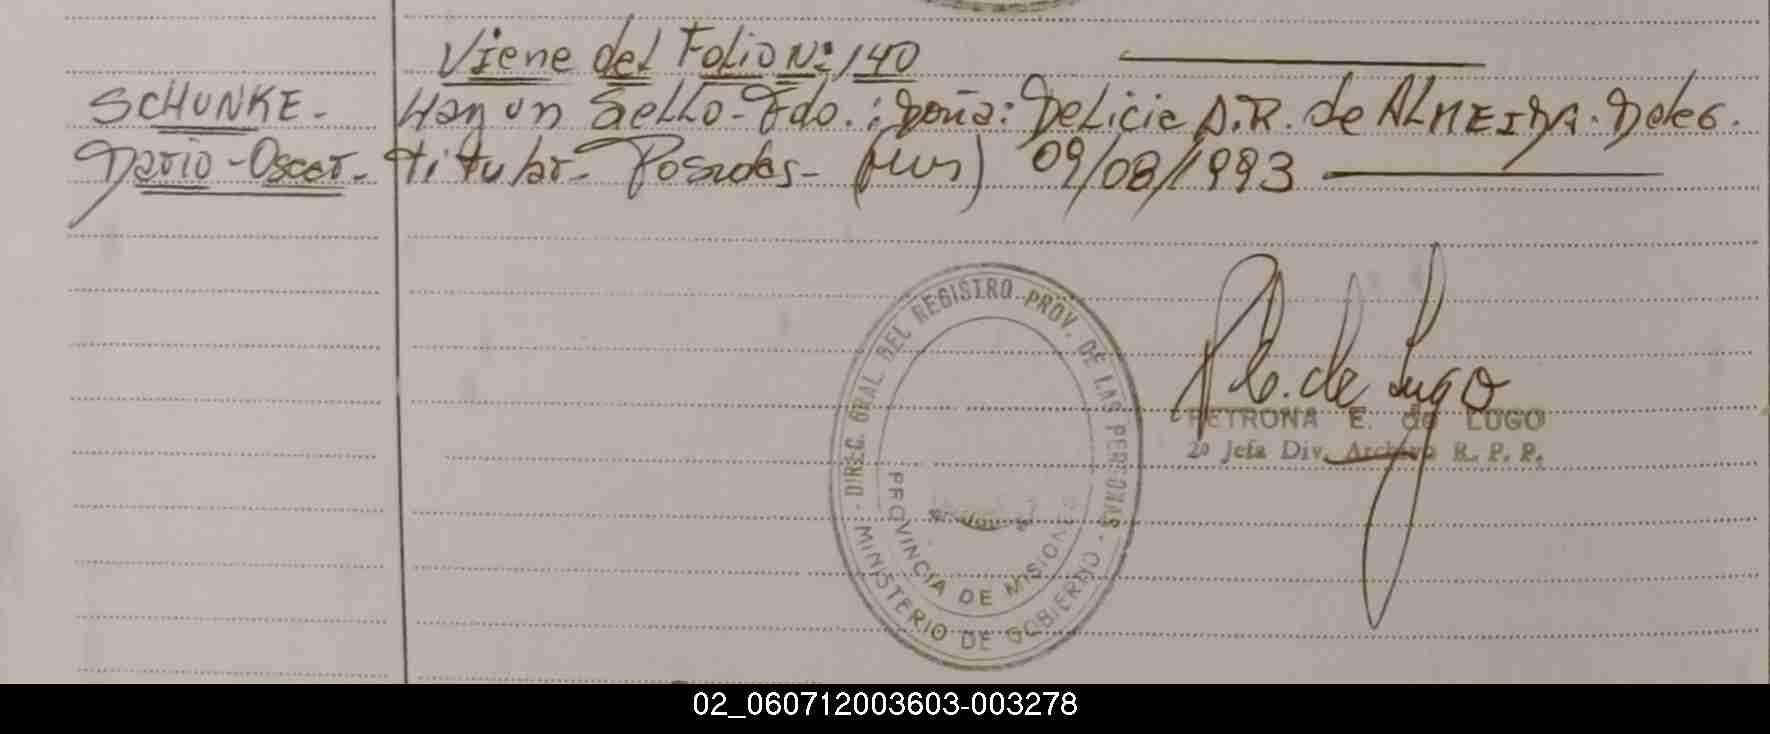 Viene del Folio Nº 140
SCHUNKE.- Hay un Sello- Fdo.: Doña: Delicia A.R. de ALMEIDA. Deleg.
Dario-Oscar.- titular- Posadas- (Mns) 09/08/1993
DIREC. GRAL. DEL REGISTRO PROV. DE LAS PERSONAS -
MINISTERIO DE GOBIERNO
PROVINCIA DE MISIONES
P. E. de Lugo
PETRONA E. de LUGO
2º Jefa Div. Archivo R. P. P.
02_060712003603-003278